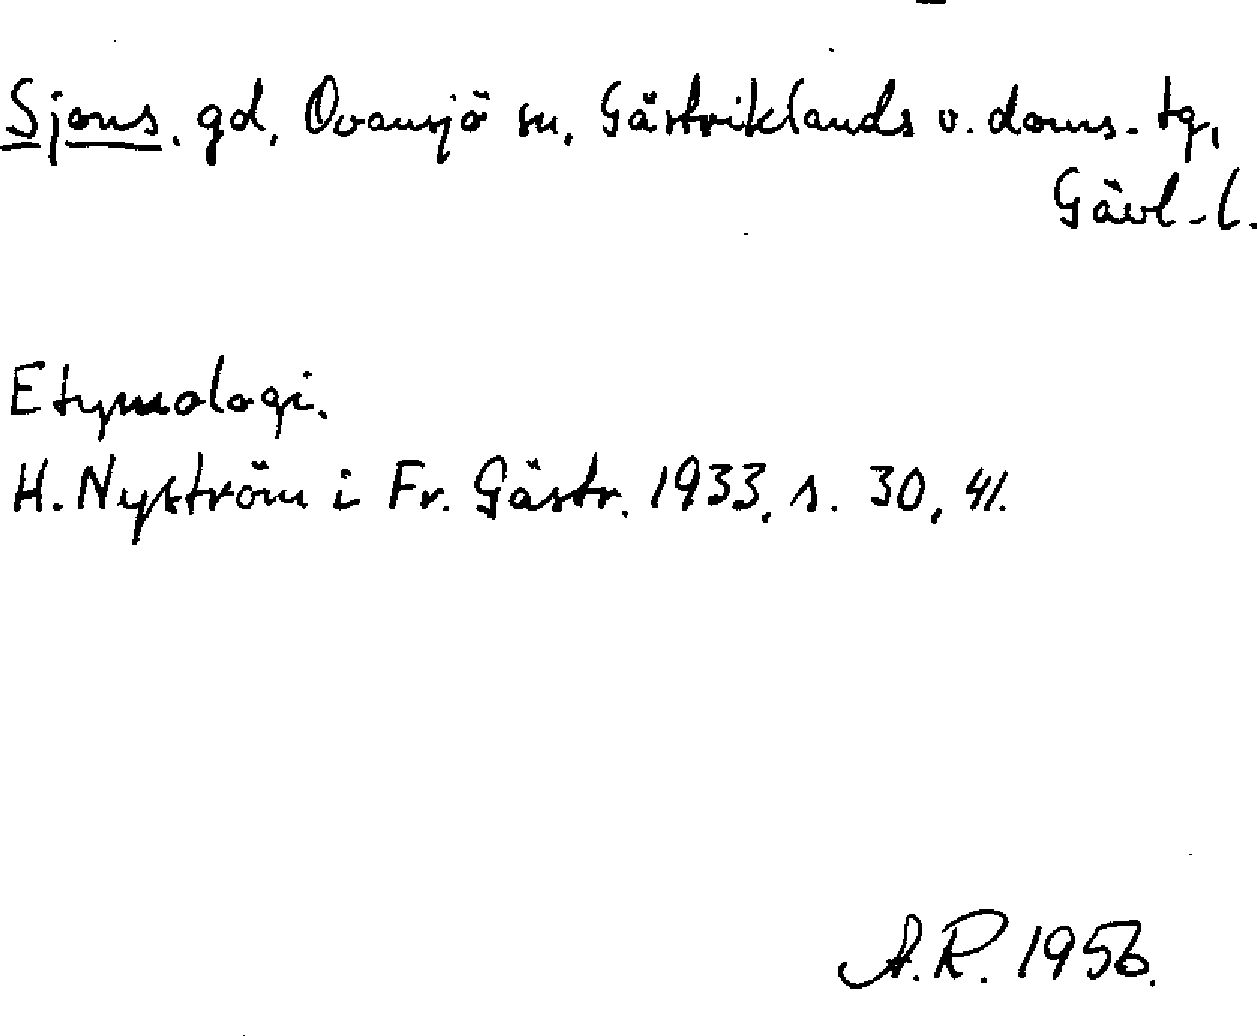 Sjons, gd, Ovansjö sn, Gästriklands v. doms. tg,
Gävl. l.
Etymologi.
H. Nyström i Fr. Gästr. 1933, s. 30, 41.
A.R. 1956.